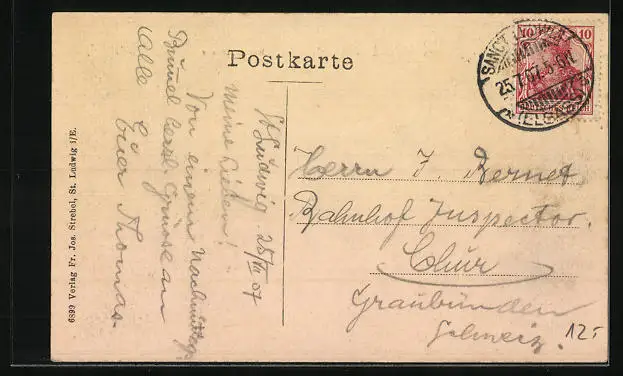 Postkarte
St. Ludwig. 25/VII 07
Meine Lieben!
Von einem Nachmittags
Bummel herzl. Grüsse an
alle Euer Thomas.
Herrn J. Bernet
Bahnhof Inspector.
Chur
Graubünden
Schweiz.
12.-
10
SANCT LUDWIG
25.7.07. 5-6N
(ELSASS)
6899 Verlag Fr. Jos. Strebel, St. Ludwig i/E.